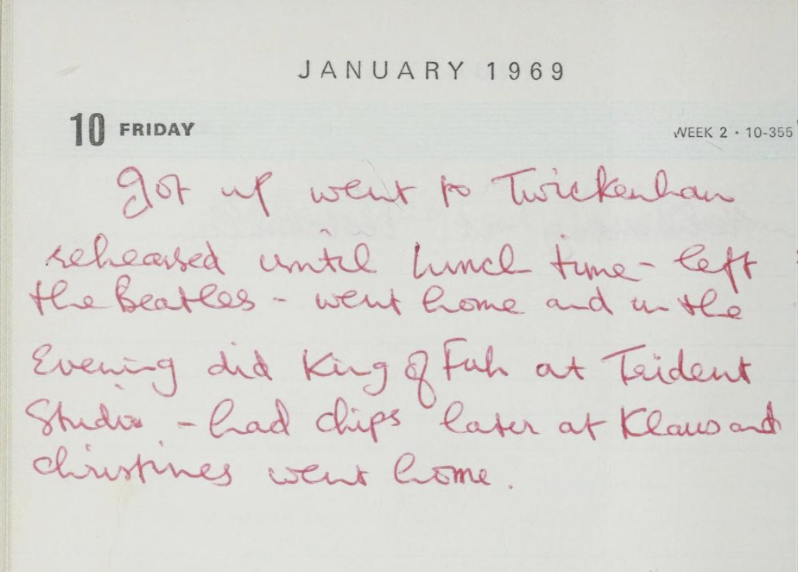 JANUARY 1969
10 FRIDAY WEEK 2 · 10-355
got up went to Twickenham
rehearsed until lunch time - left
the Beatles - went home and in the
Evening did King of Fuh at Trident
Studio - had chips later at Klaus and
christines went home.